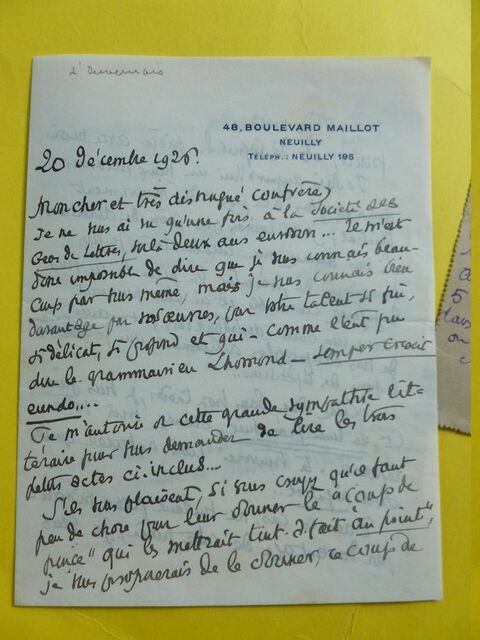 48, BOULEVARD MAILLOT
NEUILLY
TÉLÉPH.: NEUILLY 195
20 décembre 1926.
Mon cher et très distingué confrère,
Je ne vous ai vu qu'une fois à la Société des
Gens de Lettres, voilà deux ans environ... Il m'est
donc impossible de dire que je vous connais beau-
coup par vous même, mais je vous connais bien
davantage par vos œuvres, par votre talent si fin,
si délicat, si profond et qui - comme l'eût pu
dire le grammairien Lhomond - semper crescit
eundo....
Je m'autorise de cette grande sympathie lit-
téraire pour vous demander de lire les trois
petits actes ci-inclus....
S'ils vous plaisent, si vous croyez qu'il faut
peu de chose pour leur donner le "coup de
pouce" qui les mettrait tout à fait "au point",
je vous proposerais de le donner, ce coup de